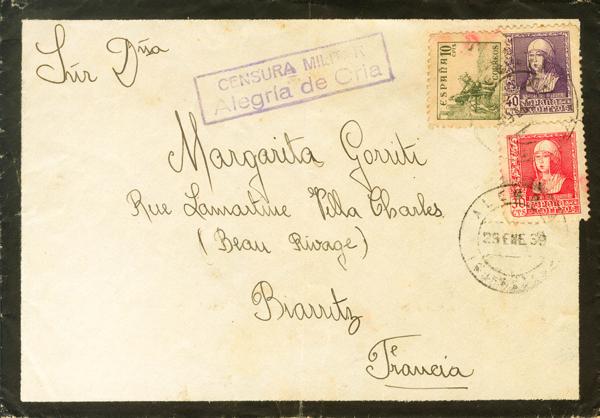 Sñr Dña
CENSURA MILITAR
Alegría de Oria
Margarita Gorriti
Rue Lamartine Villa Charles
(Beau Rivage)
Biarritz
Francia
ESPAÑA 10 CTS
CORREOS
40
ESPAÑA
CORREOS
30
CTS
ESPAÑA
CORREOS
25 ENE 39